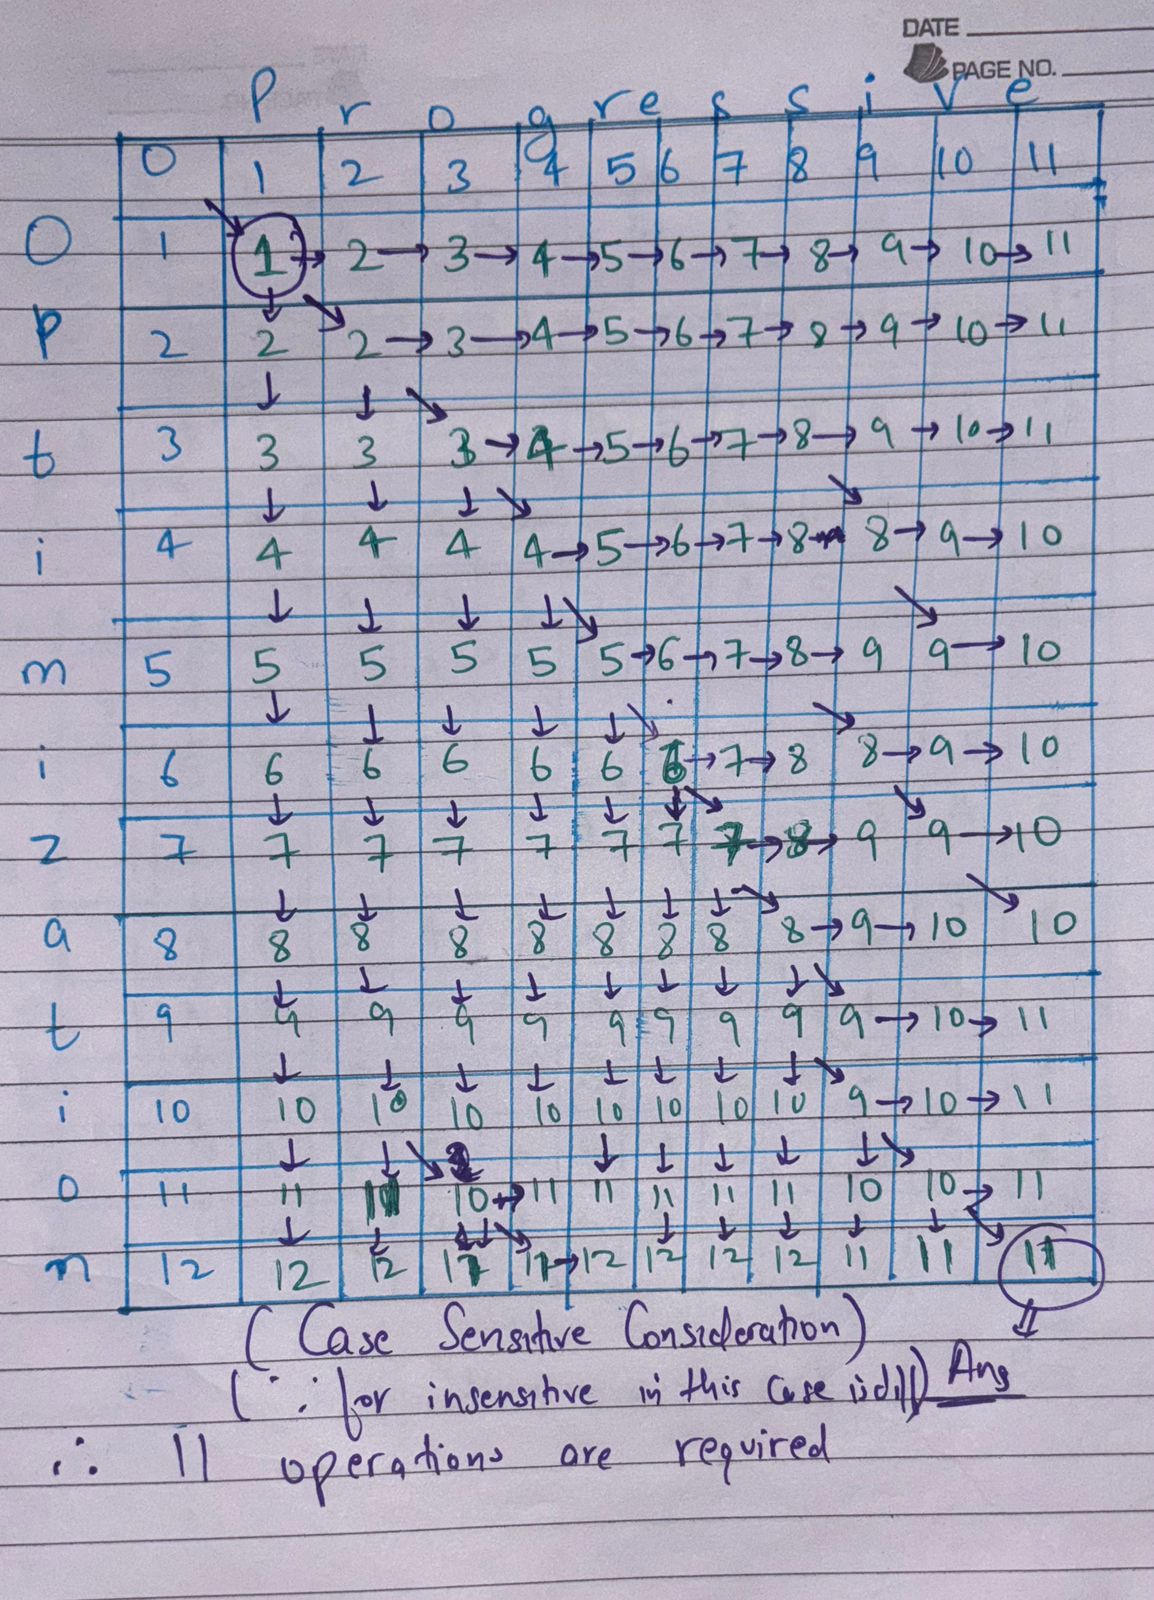 DATE
PAGE NO.
P r o g r e s s i v e
0 1 2 3 4 5 6 7 8 9 10 11
O 1 1 → 2 → 3 → 4 → 5 → 6 → 7 → 8 → 9 → 10 → 11
P 2 2 2 → 3 → 4 → 5 → 6 → 7 → 8 → 9 → 10 → 11
t 3 3 3 3 → 4 → 5 → 6 → 7 → 8 → 9 → 10 → 11
i 4 4 4 4 4 → 5 → 6 → 7 → 8 8 → 9 → 10
m 5 5 5 5 5 5 → 6 → 7 → 8 → 9 9 → 10
i 6 6 6 6 6 6 6 → 7 → 8 8 → 9 → 10
z 7 7 7 7 7 7 7 7 → 8 → 9 9 → 10
a 8 8 8 8 8 8 8 8 8 → 9 → 10 10
t 9 9 9 9 9 9 9 9 9 9 → 10 → 11
i 10 10 10 10 10 10 10 10 10 9 → 10 → 11
o 11 11 11 10 → 11 11 11 11 11 10 10 → 11
n 12 12 12 11 11 → 12 12 12 12 11 11 11
(Case Sensitive Consideration)
(∵ for insensitive in this case is diff) Ans
∴ 11 operations are required